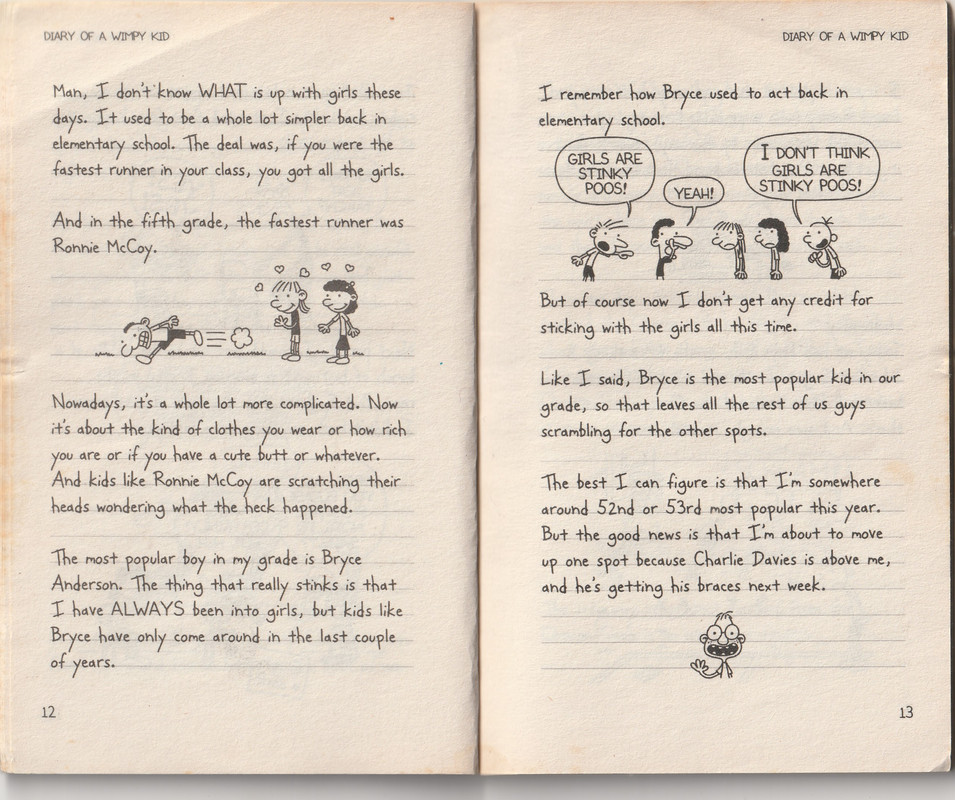 DIARY OF A WIMPY KID
Man, I don't know WHAT is up with girls these
days. It used to be a whole lot simpler back in
elementary school. The deal was, if you were the
fastest runner in your class, you got all the girls.
And in the fifth grade, the fastest runner was
Ronnie McCoy.
Nowadays, it's a whole lot more complicated. Now
it's about the kind of clothes you wear or how rich
you are or if you have a cute butt or whatever.
And kids like Ronnie McCoy are scratching their
heads wondering what the heck happened.
The most popular boy in my grade is Bryce
Anderson. The thing that really stinks is that
I have ALWAYS been into girls, but kids like
Bryce have only come around in the last couple
of years.
12
DIARY OF A WIMPY KID
I remember how Bryce used to act back in
elementary school.
GIRLS ARE
STINKY
POOS!
YEAH!
I DON'T THINK
GIRLS ARE
STINKY POOS!
But of course now I don't get any credit for
sticking with the girls all this time.
Like I said, Bryce is the most popular kid in our
grade, so that leaves all the rest of us guys
scrambling for the other spots.
The best I can figure is that I'm somewhere
around 52nd or 53rd most popular this year.
But the good news is that I'm about to move
up one spot because Charlie Davies is above me,
and he's getting his braces next week.
13